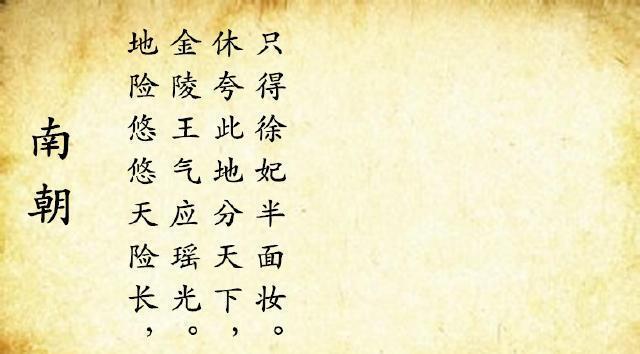 南朝
地险悠悠天险长，
金陵王气应瑶光。
休夸此地分天下，
只得徐妃半面妆。